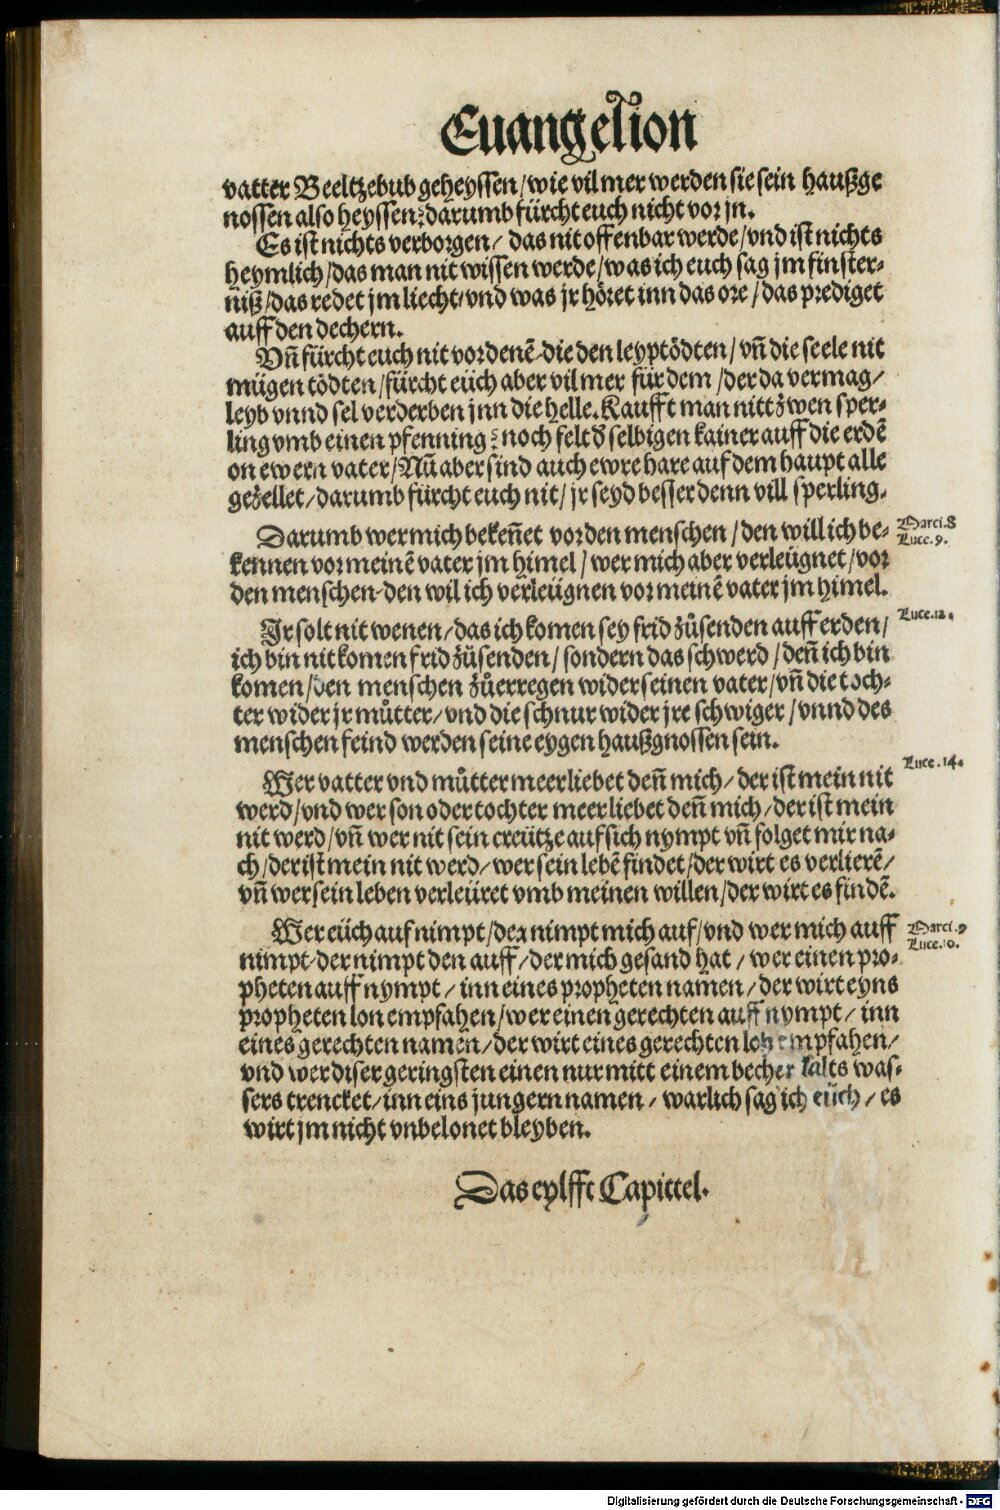 Euangelion
vatter Beeltzebub geheyssen/wie vil mer werden sie sein haußge
nossen also heyssen? darumb fürcht euch nicht vor jn.
Es ist nichts verborgen/ das nit offenbar werde/vnd ist nichts
heymlich/das man nit wissen werde/was ich euch sag jm finster-
niß/das redet jm liecht/vnd was jr höret inn das ore/das prediget
auff den dechern.
Vñ fürcht euch nit vor denẽ/die den leyp tödten/ vñ die seele nit
mügen tödten/fürcht eüch aber vil mer für dem/der da vermag/
leyb vnnd sel verderben jnn die helle. Kaufft man nitt zwen sper-
ling vmb einen pfenning? noch felt d̕ selbigen kainer auff die erdẽ
on ewern vater/Nũ aber sind auch ewre hare auf dem haupt alle
gezellet/darumb fürcht euch nit/ jr seyd besser denn vill sperling.
Darumb wer mich bekeñet vor den menschen/den will ich be-
Marci.8
kennen vor meinẽ vater jm himel/wer mich aber verleügnet/vor
Luce.9.
den menschen/den wil ich verleügnen vor meinẽ vater jm himel.
Ir solt nit wenen/das ich komen sey frid zůsenden auff erden/
Luce.12.
ich bin nit komen frid zůsenden/ sondern das schwerd/deñ ich bin
komen/den menschen zůerregen wider seinen vater/vñ die toch-
ter wider jr můtter/vnd die schnur wider jre schwiger/vnnd des
menschen feind werden seine eygen haußgnossen sein.
Wer vatter vnd můtter meer liebet deñ mich/ der ist mein nit
Luce.14.
werd/vnd wer son oder tochter meer liebet deñ mich/der ist mein
nit werd/vñ wer nit sein creütze auf sich nympt vñ folget mir na-
ch/der ist mein nit werd/wer sein lebẽ findet/der wirt es verlierẽ/
vñ wer sein leben verleüret vmb meinen willen/der wirt es findẽ.
Wer eüch auf nimpt/der nimpt mich auf/vnd wer mich auff
Marci.9
nimpt/der nimpt den auff/der mich gesand hat/wer einen pro-
Luce.10.
pheten auff nympt/ inn eines propheten namen/der wirt eyns
propheten lon empfahen/wer einen gerechten auff nympt/ inn
eines gerechten namen/der wirt eines gerechten lon empfahen/
vnd wer diser geringsten einen nur mitt einem becher kalts was-
sers trencket/inn eins jungern namen/ warlich sag ich eüch/ es
wirt jm nicht vnbelonet bleyben.
Das eylfft Capittel.
Digitalisierung gefördert durch die Deutsche Forschungsgemeinschaft - DFG